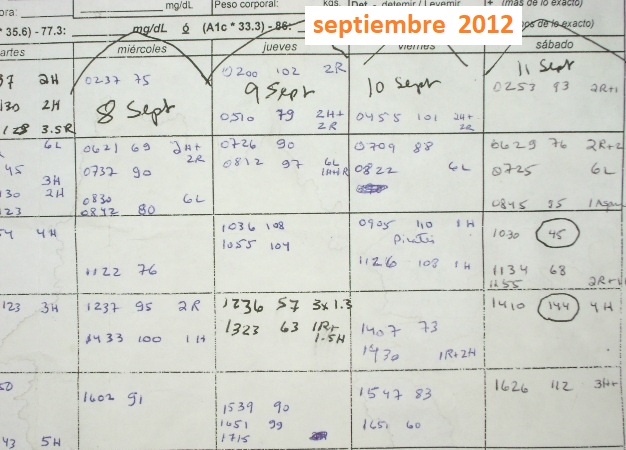 ora:
mg/dL
Peso corporal:
kgs.
septiembre 2012
* 35.6) - 77.3:
mg/dL ó (A1c * 33.3) - 86:
(más de lo exacto)
ops de lo exacto)
artes miércoles jueves viernes sábado
37 2H
0237 75
0200 102 2R
11 Sept
130 2H
8 Sept
9 Sept
10 Sept
0253 93
128 3.5R
0510 79 2H+
2R
0455 101 2H+
2R
6L
0621 69 2H+
2R
0726 90
0709 88
0629 76 2R+2
45
0737 90
0812 97 6L
0822 6L
0725 6L
3H
130 2H
0830 6L
123
0842 80
0845 85
54 4H
1036 108
0905 110 1H
1030 45
1055 104
1122 76
1126 108 1H
1134 68
1155
123 3H
1237 95 2R
1236 57 3x1.3
1410 144 4H
1323 63 1R+
1.5H
1407 73
1433 100 1H
1430 1R+2H
50
1602 91
1547 83
1626 112 3H+
1539 90
1651 99
1651 60
43 5H
1715